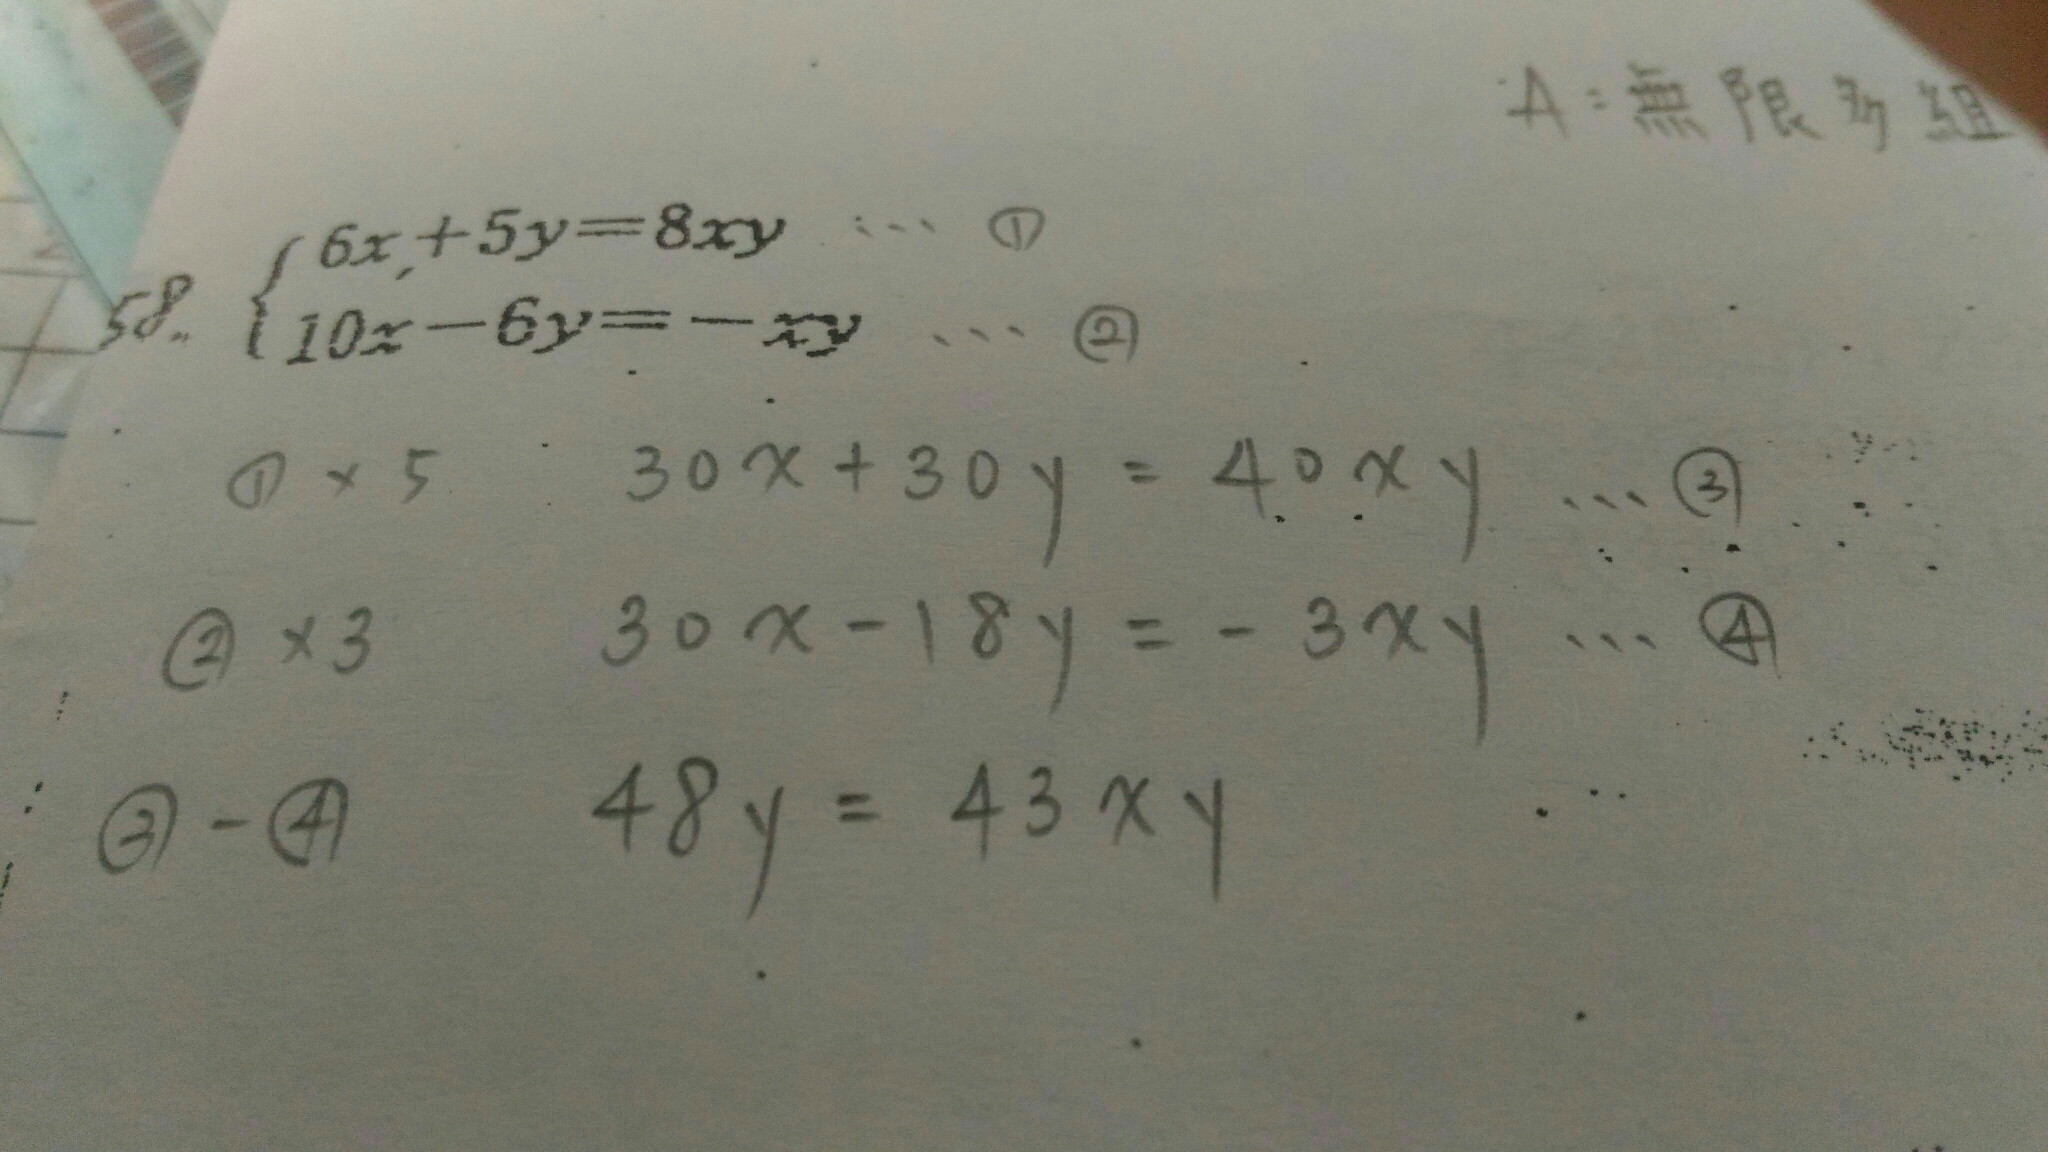 A:無限多組
6x+5y=8xy ... ①
58. 10x-6y=-xy ... ②
①×5 30x+30y=40xy ... ③
②×3 30x-18y=-3xy ... ④
③-④ 48y=43xy